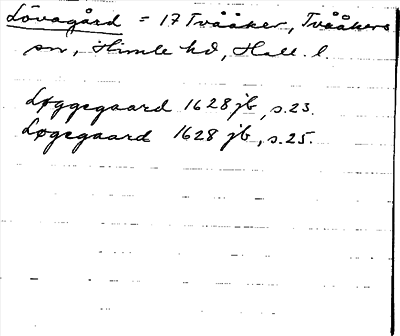 Lövagård = 17 Tvååker, Tvååkers
sn, Himle hd, Hall. l.
Løggegaard 1628 jb, s. 23.
Løgegaard 1628 jb, s. 25.